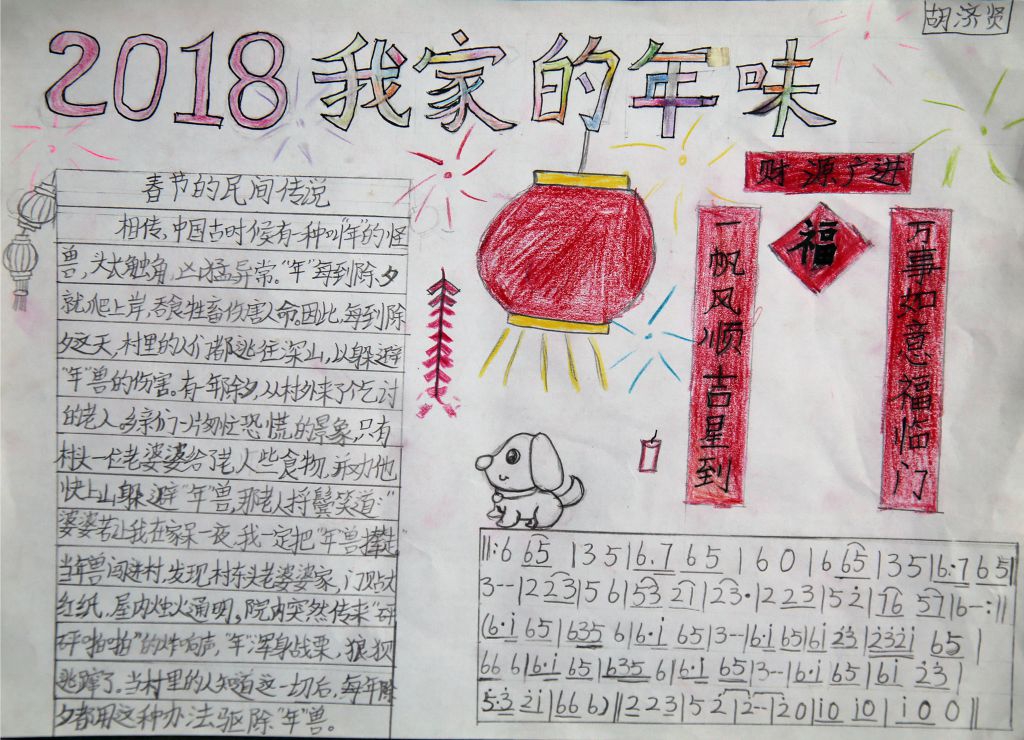 胡济贤
2018我家的年味
财源广进
福
一帆风顺吉星到
万事如意福临门
春节的民间传说
相传,中国古时候有一种叫“年”的怪
兽,头大触角,凶猛异常。“年”每到除夕
就爬上岸,吞食牲畜伤害人命。因此,每到除
夕这天,村里的人们都逃往深山,以躲避
“年”兽的伤害。有一年除夕,从村外来了个乞讨
的老人。乡亲们一片匆忙恐慌的景象,只有
村头一位老婆婆给了老人些食物,并劝他
快上山躲避“年”兽,那老人捋鬓笑道:“
婆婆若让我在家呆一夜,我一定把“年”兽撵走。
当年兽闯进村,发现村东头老婆婆家,门贴大
红纸,屋内烛火通明,院内突然传来“砰
砰啪啪”的炸响声,“年”浑身战栗,狼狈
逃蹿了。当村里的人知道这一切后,每年除
夕都用这种办法驱除“年”兽。
||:6 65 |3 5|6.7 6 5 |6 0|6 65|3 5|6.7 6 5||
3--|2 23|5 6|53 21|23.|2 23|5 2|76 57|6-:||
(6.i 65|635 6|6.i 65|3--|6.i 65|6i 23|2321 65|
66 6|6.i 65|635 6|6.i 65|3--|6.i 65|6i 23|
5.3 2i|66 6)||2 23|5 2|2--|20|i0 i0|i0 0||